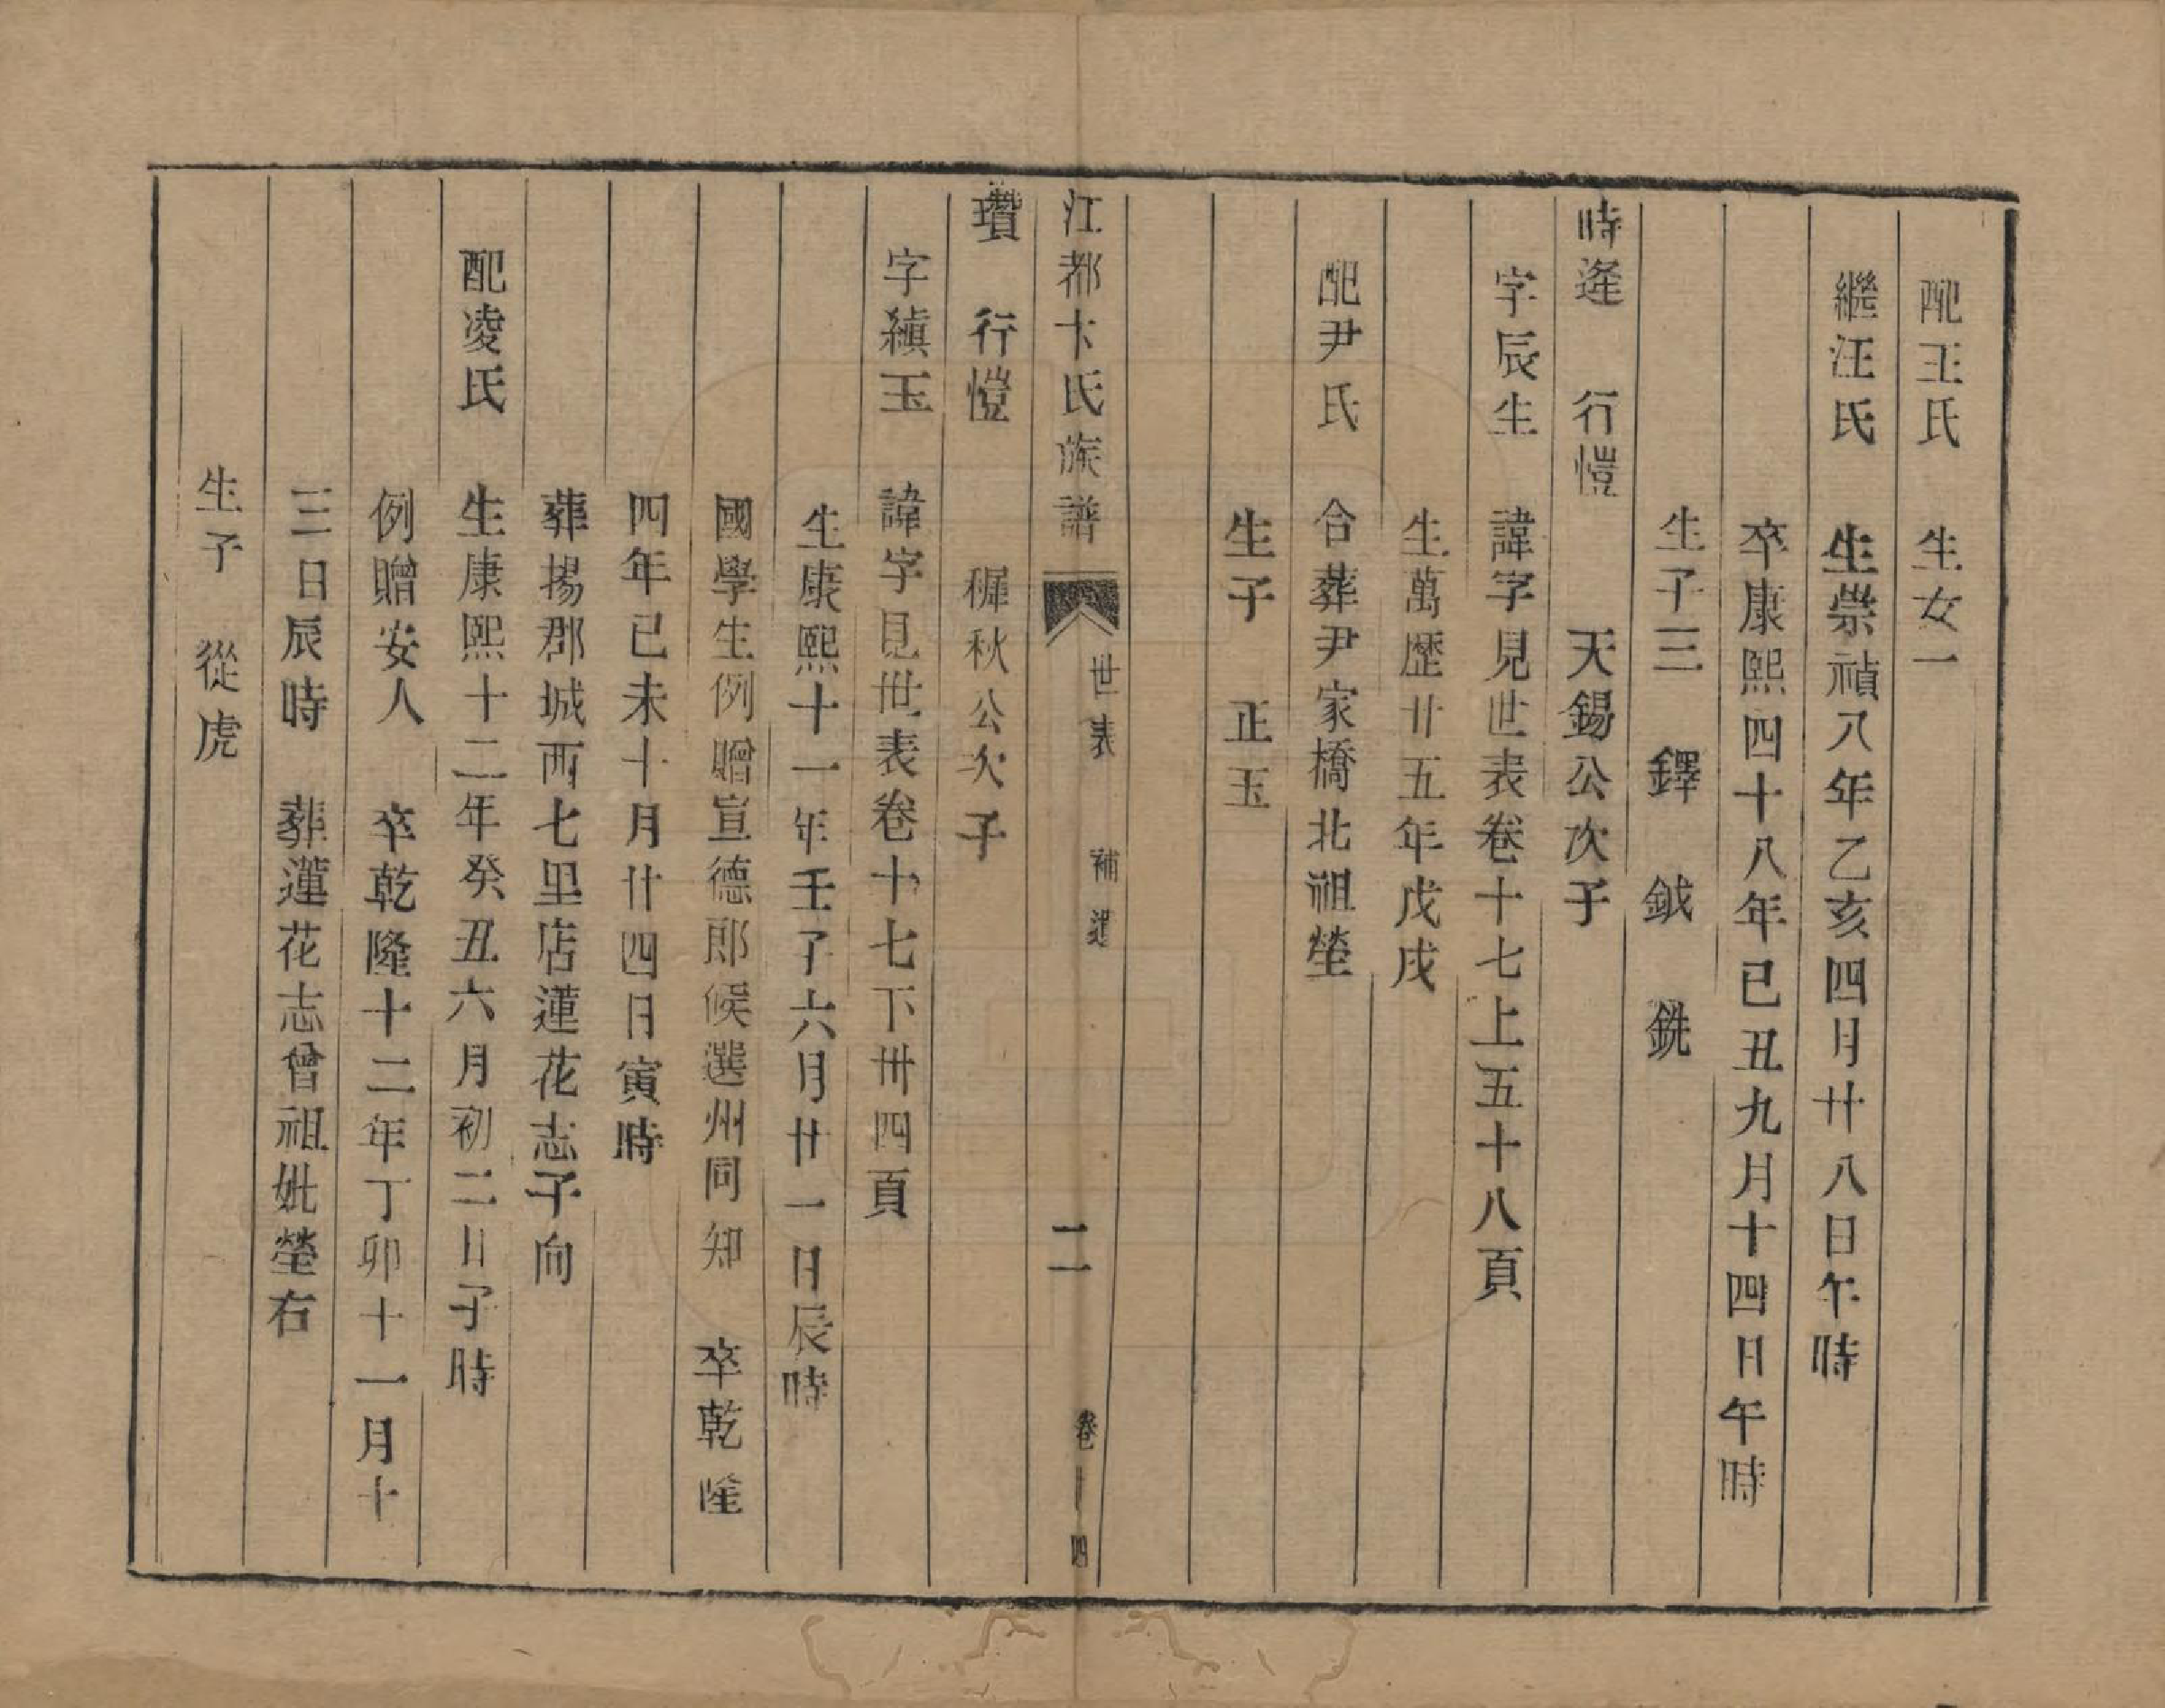 配王氏 生女一
繼汪氏 生崇禎八年乙亥四月廿八日午時
卒康熙四十八年己丑九月十四日午時
生子三 鐸 鉞 銑
時逢 行愷 天錫公次子
字辰生 諱字見世表卷十七上五十八頁
生萬歷廿五年戊戌
配尹氏 合葬尹家橋北祖塋
生子 正玉
江都卞氏族譜 世表 補遺 二 卷十四
瓚 行愷 穉秋公次子
字縝玉 諱字見世表卷十七下卅四頁
生康熙十一年壬子六月廿一日辰時
國學生例贈宣德郎候選州同知 卒乾隆
四年己未十月廿四日寅時
葬揚郡城西七里店蓮花志子向
配凌氏 生康熙十二年癸丑六月初二日子時
例贈安人 卒乾隆十二年丁卯十一月十
三日辰時 葬蓮花志曾祖妣塋右
生子 從虎